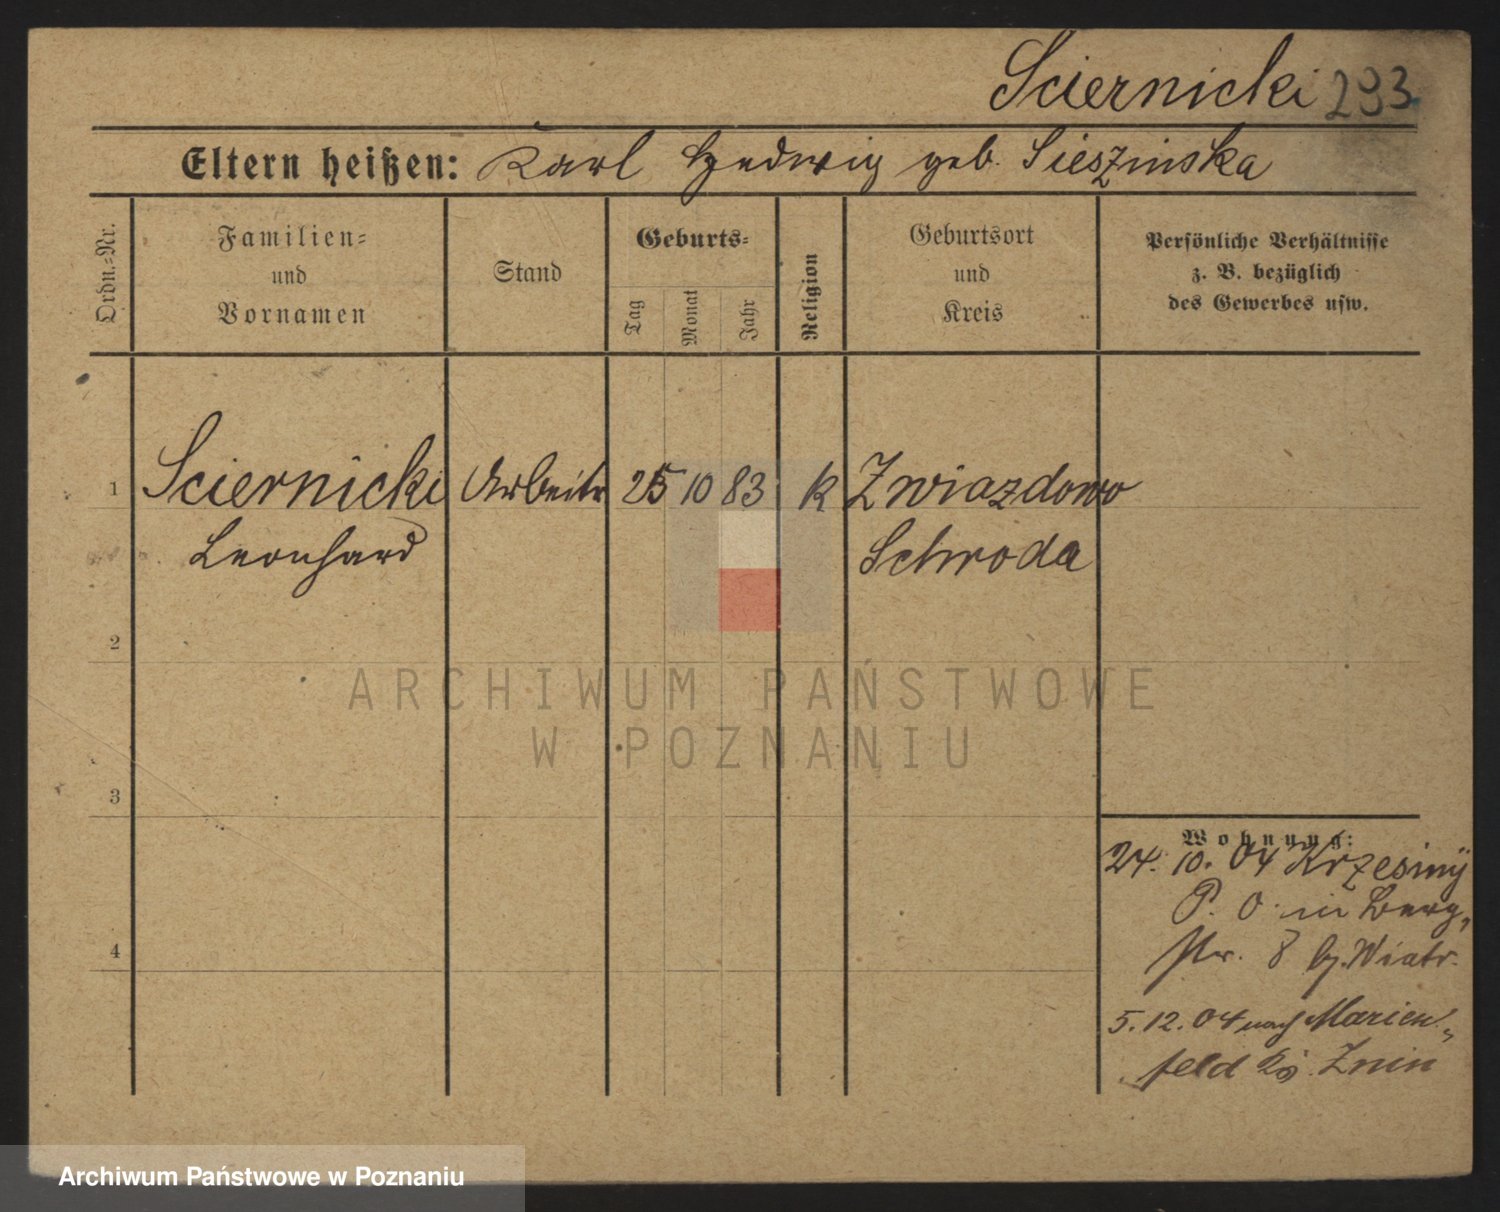 Sciernicki 293
Eltern heißen: Karl Hedwig geb. Sieszinska
Ordn.-Nr.
Familien- und Vornamen
Stand
Geburts-
Tag
Monat
Jahr
Religion
Geburtsort und Kreis
Persönliche Verhältnisse
z. B. bezüglich
des Gewerbes usw.
1 Sciernicki Arbeitr 25 10 83 k Zwiazdowo
Leonhard Schroda
2
3
4
Wohnung:
24. 10. 04 Krzesiny
P. O. in Berg-
str. 8 b. Wiatr.
5. 12. 04 nach Marien-
feld Znin
ARCHIWUM PAŃSTWOWE
W POZNANIU
Archiwum Państwowe w Poznaniu